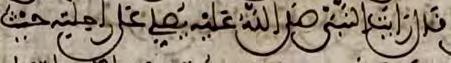 قال رايت النبي صلى الله عليه يصلي على راحلته حيث